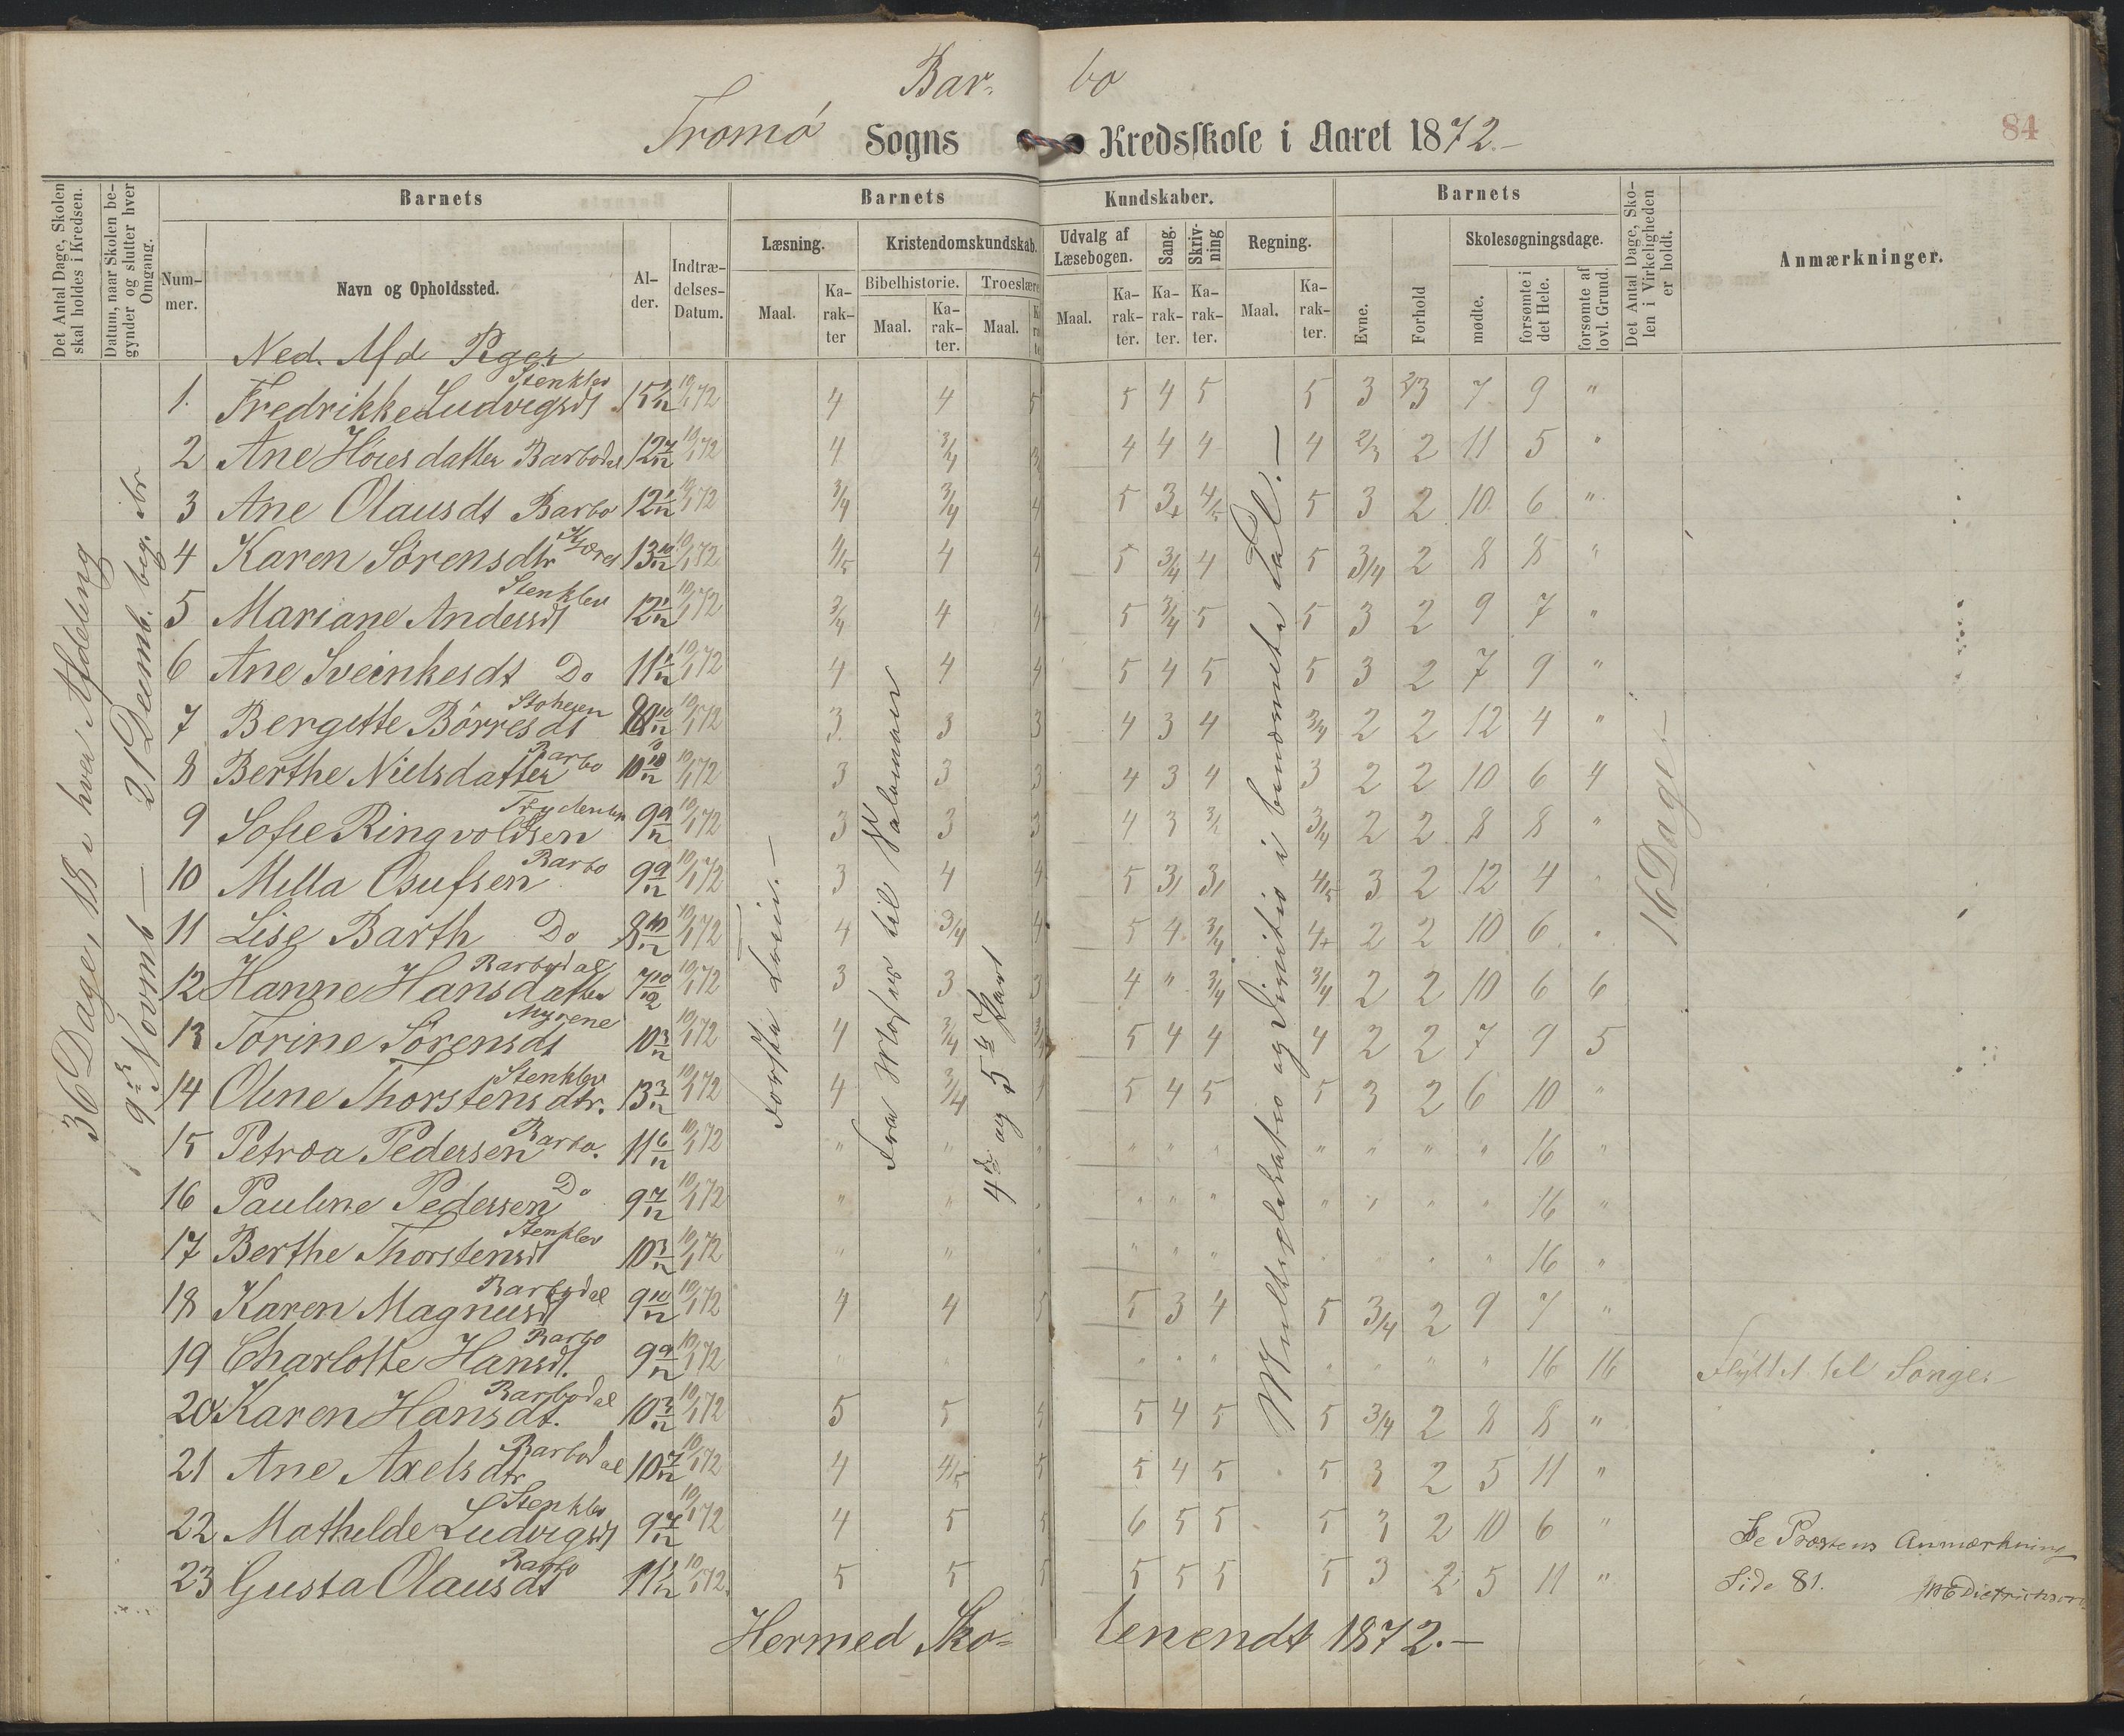 Bar- bo
Tromø Sogns Kredsskole i Aaret 1872.-
84
Det Antal Dage, Skolen skal holdes i Kredsen.
Datum, naar Skolen begynder og slutter hver Omgang.
Barnets
Nummer.
Navn og Opholdssted.
Alder.
Indtrædelses-Datum.
Barnets Kundskaber.
Læsning.
Maal.
Karakter
Kristendomskundskab.
Bibelhistorie.
Maal.
Karakter.
Troeslære
Maal.
Udvalg af Læsebogen.
Maal.
Karakter.
Sang.
Karakter.
Skrivning
Karakter.
Regning.
Maal.
Karakter.
Barnets
Evne.
Forhold
Skolesøgningsdage.
mødte.
forsømte i det Hele.
forsømte af lovl. Grund.
Det Antal Dage, Skolen i Virkeligheden er holdt.
Anmærkninger.
36 Dage, 18 i hver Afdeling
9de Novemb — 21 Decemb. beg.
Ned. Afd Piger
1. Fredrikke Ludvigsdt Stenklev 10/1 72 4 4 5 5 4 5 5 3 7 9 "
2 Ane Hoiesdatter Barbodal 12 7/12 10/1 72 4 3/4 4 4 4 4 2/3 2 11 5 "
3 Ane Olausdt Barbo 10/1 72 3/4 3/4 4 5 3+ 4/5 5 3 2 10 6 "
4 Karen Sørensdtr 13 10/12 10/1 72 4/5 4 4 5 3/4 4 5 3/4 2 8 8 "
5 Mariane Andersdt Stenklev 10/1 72 3/4 4 4 5 3/4 5 5 3 2 9 7 "
6 Ane Sveinkesdt Do 10/1 72 4 4 4 5 4 5 5 3 2 7 9 "
7 Bergitte Børresdt 10/1 72 3 3 3 4 3 4 3/4 2 2 12 4 "
8 Berthe Nielsdatter Barbo 10/1 72 3 3 3 4 3 4 3 2 2 10 6 4
9 Sofie Ringvoldsen 9 9/12 10/1 72 3 3 3 4 3 3/4 2 2 8 8 "
10 Milla Osufsen Barbo 9 9/12 10/1 72 3 4 4 5 4/5 3 2 12 4 "
11 Lise Barth Do 8 10/12 10/1 72 4 3/4 4 5 4 3/4 4+ 2 2 10 6 "
12 Hanne Hansdatter Barbodal 7 10/12 10/1 72 3 3 3 4 " 3/4 3/4 2 2 10 6 6
13 Torine Sørensdt Myrene 10 3/12 10/1 72 4 3/4 3/4 5 4 4 4 2 2 7 9 5
14 Oline Thorstensdtr. Stenklev 13 3/12 10/1 72 4 3/4 4 5 4 5 5 3 2 6 10 "
15 Petrea Pedersen Barbo. 11 6/12 10/1 72 " " " " " " " " " " 16 "
16 Pauline Pedersen Do 9 7/12 10/1 72 " " " " " " " " " " 16 "
17 Berthe Thorstensdt Stenklev 10 3/12 10/1 72 " " " " " " " " " 16 "
18 Karen Magnusdt Barbodal 9 10/12 10/1 72 4 4 5 5 3 4 5 3/4 2 9 7 "
19 Charlotte Hansdt. Barbo 9 9/12 10/1 72 " " " " " " " " " 16 16 Flyttet til Songe
20 Karen Hansdt. Barbodal 10/1 72 5 5 4 5 4 5 5 3/4 2 8 8 "
21 Ane Axelsdtr Barbodal 10 7/12 10/1 72 4 4/5 5 5 4 5 5 3 2 5 11 "
22 Mathilde Ludvigsdt Stenklev 9 7/12 10/1 72 4 5 5 6 5 5 5 3 2 10 6 "
23 Gusta Olausdt Barbo 10/1 72. 5 5 5 5 5 5 5 3 2 5 11 "
Første Trin.-
Fra til
4de og 5te Part
Multiplikation og Division i benævnte Tal.-
16 Dage.-
Se Provstens Anmærkning
Side 81.
Dietrichson
Hermed Skolen endt 1872.-